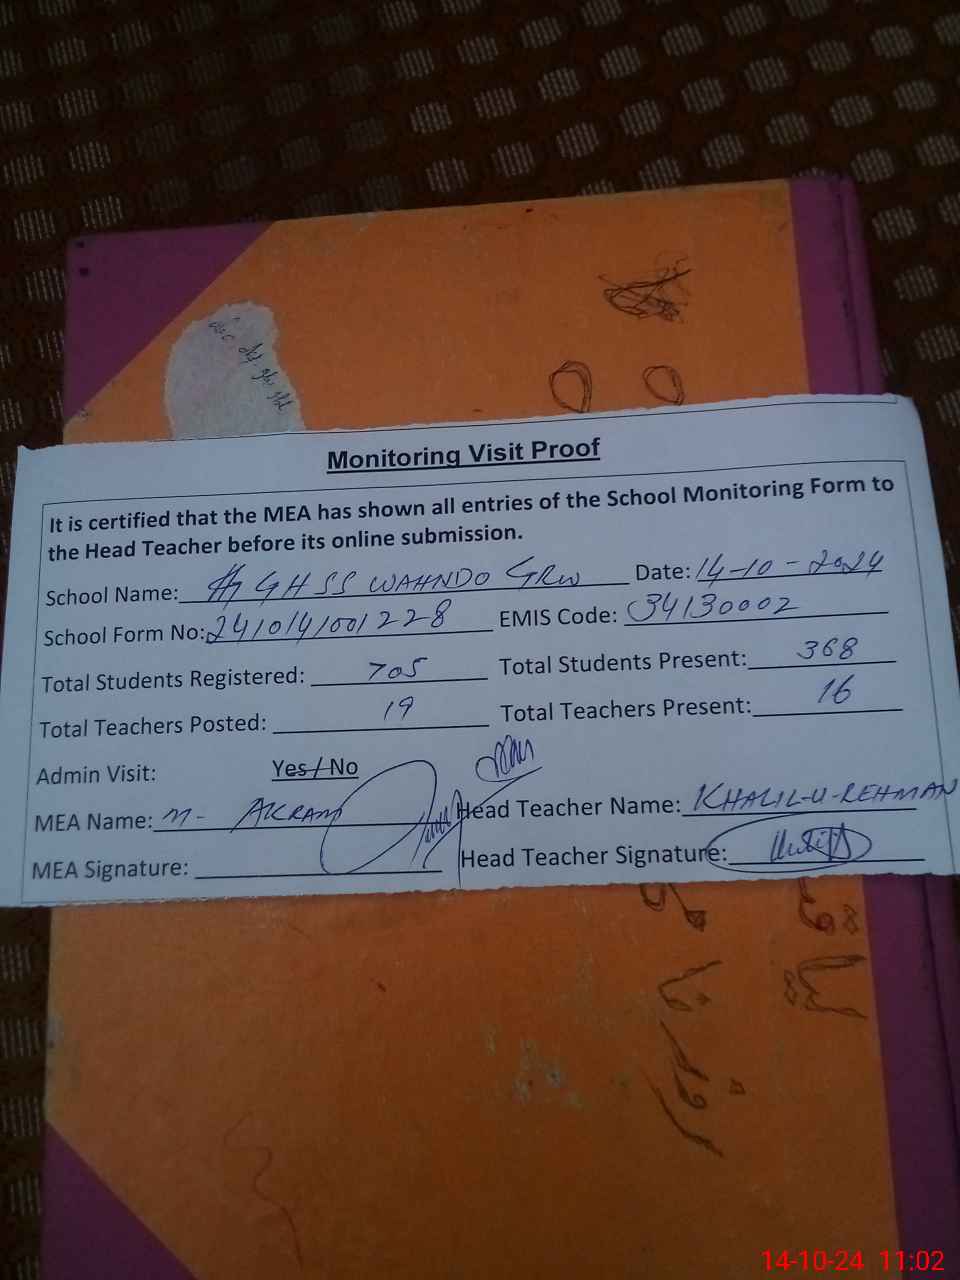 Monitoring Visit Proof
It is certified that the MEA has shown all entries of the School Monitoring Form to
the Head Teacher before its online submission.
School Name: GHSS WAHNDO GRW Date: 14-10-2024
School Form No: 2410141001228 EMIS Code: 34130002
Total Students Registered: 705 Total Students Present: 368
Total Teachers Posted: 19 Total Teachers Present: 16
Admin Visit: Yes / No
MEA Name: M- AKRAM Head Teacher Name: KHALIL-U-REHMAN
MEA Signature: Head Teacher Signature:
14-10-24 11:02